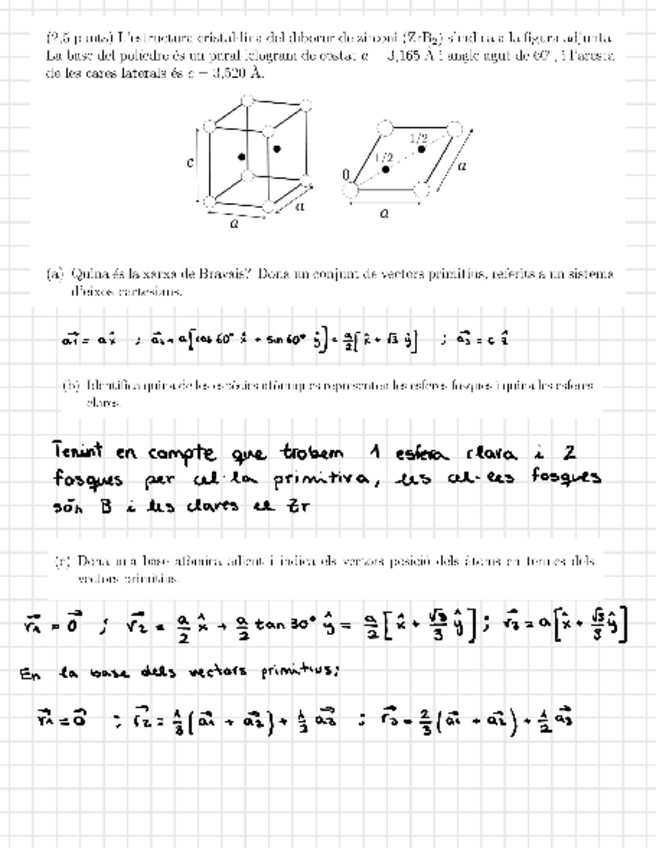 (2,5 punts) L'estructura cristal·lina del diborur de zirconi (ZrB₂) s'indica a la figura adjunta.
La base del políedre és un paral·lelogram de costat a = 3,165 Å i angle agut de 60°, i l'aresta
de les cares laterals és c = 3,520 Å.
c
a
a
0
1/2
1/2
a
a
(a) Quina és la xarxa de Bravais? Dona un conjunt de vectors primitius, referits a un sistema
d'eixos cartesians.
a₁⃗ = a x̂ ; a₂⃗ = a[cos 60° x̂ + sin 60° ŷ] = a/2 [x̂ + √3 ŷ] ; a₃⃗ = c ẑ
(b) Identifica quina de les espècies atòmiques representen les esferes fosques i quina les esferes
clares.
Tenint en compte que trobem 1 esfera clara i 2
fosques per cel·la primitiva, les cel·les fosques
són B i les clares el Zr
(c) Dona una base atòmica adient i indica els vectors posició dels àtoms en termes dels
vectors primitius.
r₁⃗ = 0⃗ ; r₂⃗ = a/2 x̂ + a/2 tan 30° ŷ = a/2 [x̂ + √3/3 ŷ] ; r₃⃗ = a [x̂ + √3/3 ŷ]
En la base dels vectors primitius:
r₁⃗ = 0⃗ ; r₂⃗ = 1/3 (a₁⃗ + a₂⃗) + 1/2 a₃⃗ ; r₃⃗ = 2/3 (a₁⃗ + a₂⃗) + 1/2 a₃⃗